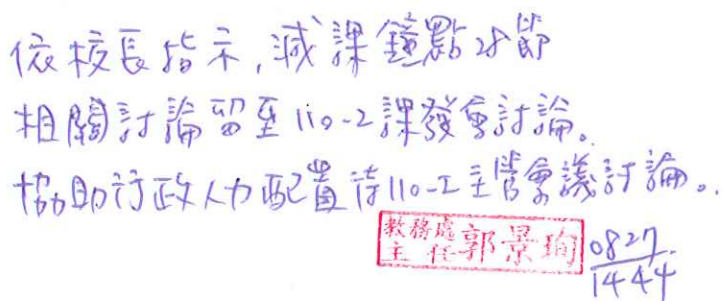 依校長指示,減課鐘點28節
相關討論留至110-2課發會討論。
協助行政人力配置待110-2主管會議討論。
教務處
主任 郭景珣 0827
1444